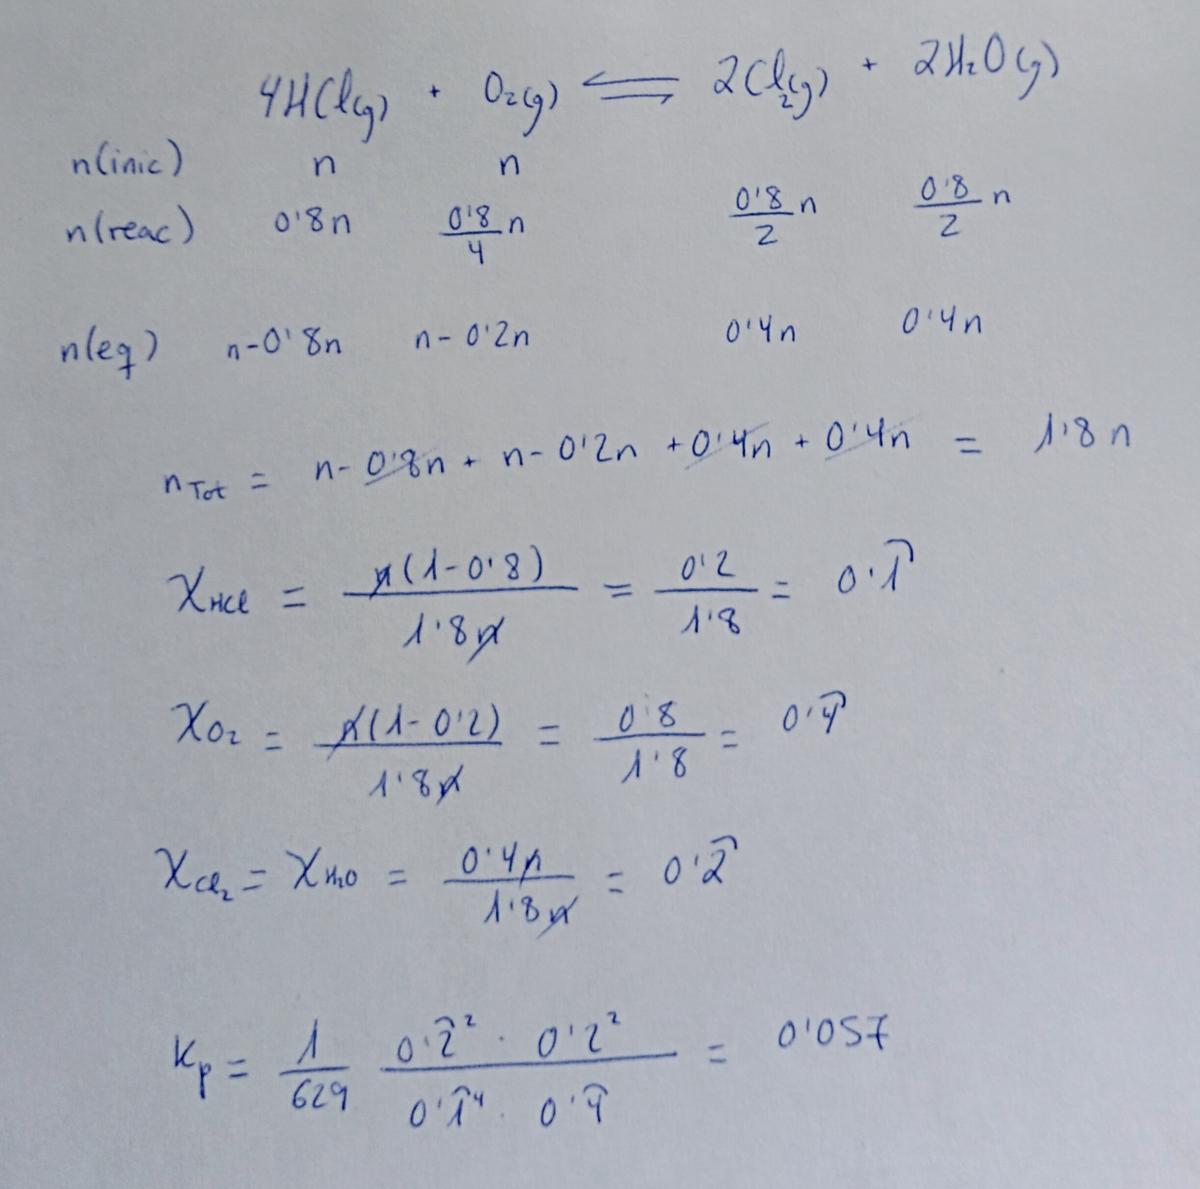 4HCl(g) + O₂(g) ⇌ 2Cl₂(g) + 2H₂O(g)
n(inic) n n
n(reac) 0'8n 0'8/4 n 0'8/2 n 0'8/2 n
n(eq) n-0'8n n-0'2n 0'4n 0'4n
n Tot = n-0'8n + n-0'2n + 0'4n + 0'4n = 1'8n
χHCl = n(1-0'8)/1'8n = 0'2/1'8 = 0'1̂
χO₂ = n(1-0'2)/1'8n = 0'8/1'8 = 0'4̂
χCl₂ = χH₂O = 0'4n/1'8n = 0'2̂
Kp = 1/629 0'2̂² · 0'2²/0'1̂⁴ · 0'4̂ = 0'057